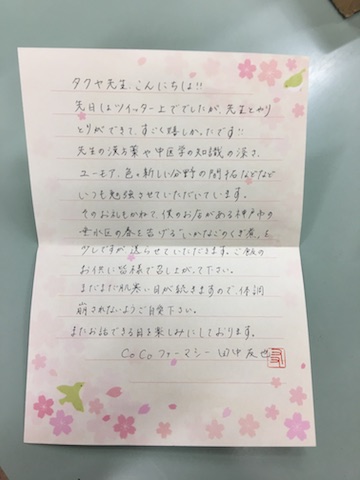 タクヤ先生、こんにちは!!
先日はツイッター上ででしたが、先生とやり
とりができて、すごく嬉しかったです!!
先生の漢方薬や中医学の知識の深さ、
ユーモア、色々新しい分野の開拓などなど
いつも勉強させていただいています。
そのお礼もかねて、僕のお店がある神戸市の
垂水区の春を告げる"いかなごのくぎ煮"を
少しですが送らせていただきます。ご飯の
お供に皆様で召し上がって下さい。
まだまだ肌寒い日が続きますので、体調
崩されないようご自愛下さい。
またお話できる日を楽しみにしております。
CoCoファーマシー 田中友也